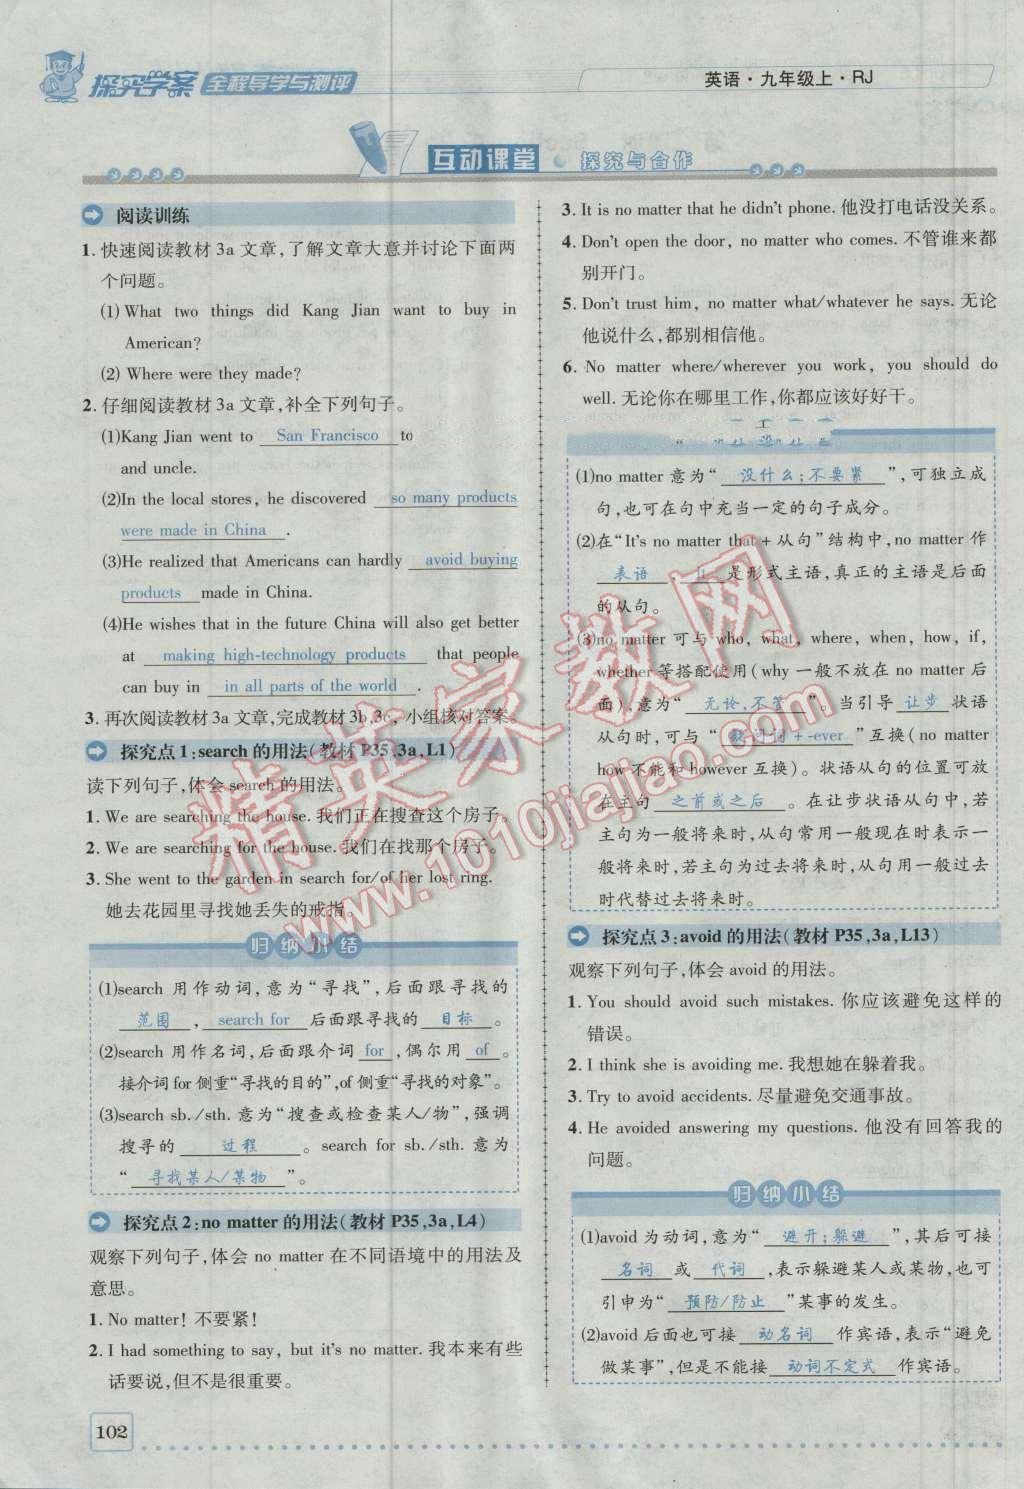 探究学案 全程导学与测评
英语·九年级上·RJ
互动课堂·探究与合作
阅读训练
1. 快速阅读教材 3a 文章,了解文章大意并讨论下面两
个问题。
(1) What two things did Kang Jian want to buy in
American?
(2) Where were they made?
2. 仔细阅读教材 3a 文章,补全下列句子。
(1)Kang Jian went to San Francisco to
and uncle.
(2)In the local stores, he discovered so many products
were made in China .
(3)He realized that Americans can hardly avoid buying
products made in China.
(4)He wishes that in the future China will also get better
at making high-technology products that people
can buy in in all parts of the world .
3. 再次阅读教材 3a 文章,完成教材 3b,3c, 小组核对答案。
探究点 1:search 的用法(教材 P35,3a,L1)
读下列句子,体会 search 的用法。
1. We are searching the house. 我们正在搜查这个房子。
2. We are searching for the house. 我们在找那个房子。
3. She went to the garden in search for/of her lost ring.
她去花园里寻找她丢失的戒指。
归纳小结
(1)search 用作动词,意为“寻找”,后面跟寻找的
范围 , search for 后面跟寻找的 目标 。
(2)search 用作名词,后面跟介词 for ,偶尔用 of 。
接介词 for 侧重“寻找的目的”,of 侧重“寻找的对象”。
(3)search sb./sth. 意为“搜查或检查某人/物”,强调
搜寻的 过程 。search for sb./sth. 意为
“ 寻找某人/某物 ”。
探究点 2:no matter 的用法(教材 P35,3a,L4)
观察下列句子,体会 no matter 在不同语境中的用法及
意思。
1. No matter! 不要紧!
2. I had something to say, but it's no matter. 我本来有些
话要说,但不是很重要。
102
3. It is no matter that he didn't phone. 他没打电话没关系。
4. Don't open the door, no matter who comes. 不管谁来都
别开门。
5. Don't trust him, no matter what/whatever he says. 无论
他说什么,都别相信他。
6. No matter where/wherever you work, you should do
well. 无论你在哪里工作,你都应该好好干。
(1)no matter 意为“ 没什么;不要紧 ”,可独立成
句,也可在句中充当一定的句子成分。
(2)在“It's no matter that + 从句”结构中,no matter 作
表语 it 是形式主语,真正的主语是后面
的从句。
(3)no matter 可与 who, what, where, when, how, if,
whether 等搭配使用(why 一般不放在 no matter 后
面),意为“ 无论,不管 ”。当引导 让步 状语
从句时,可与“ 疑问词 + -ever ”互换(no matter
how 不能和 however 互换)。状语从句的位置可放
在主句 之前或之后 。在让步状语从句中,若
主句为一般将来时,从句常用一般现在时表示一
般将来时;若主句为过去将来时,从句用一般过去
时代替过去将来时。
探究点 3:avoid 的用法(教材 P35,3a,L13)
观察下列句子,体会 avoid 的用法。
1. You should avoid such mistakes. 你应该避免这样的
错误。
2. I think she is avoiding me. 我想她在躲着我。
3. Try to avoid accidents. 尽量避免交通事故。
4. He avoided answering my questions. 他没有回答我的
问题。
归纳小结
(1)avoid 为动词,意为“ 避开;躲避 ”,其后可接
名词 或 代词 ,表示躲避某人或某物,也可
引申为“ 预防/防止 ”某事的发生。
(2)avoid 后面也可接 动名词 作宾语,表示“避免
做某事”,但是不能接 动词不定式 作宾语。
精英家教网
www.1010jiajiao.com